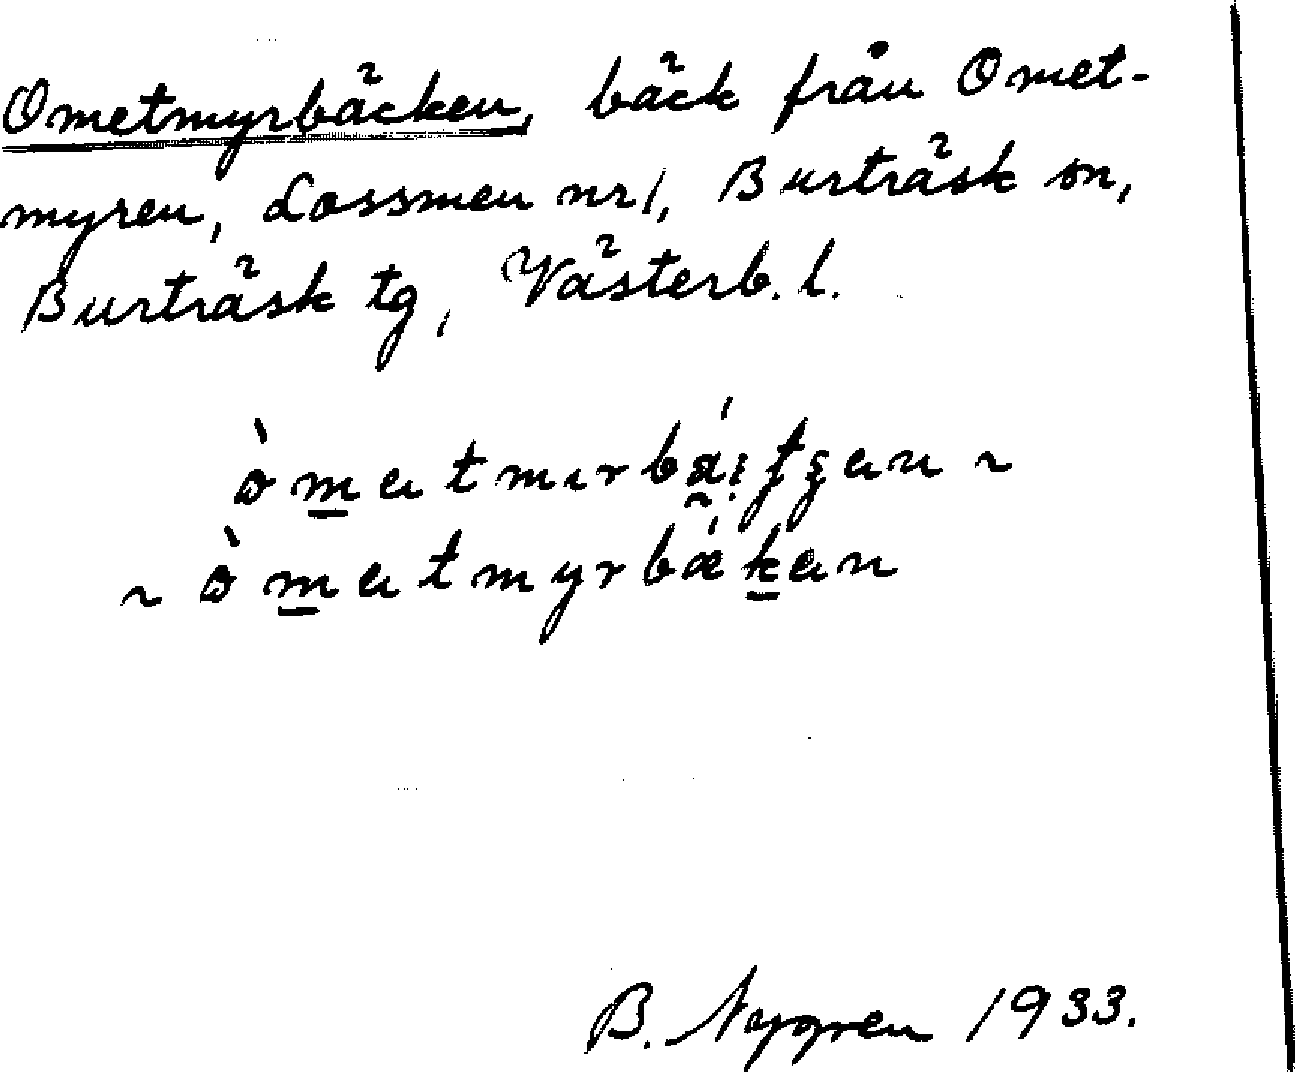 Ometmyrbäcken, bäck från Omet-
myren, Lossmen nr 1, Burträsk sn,
Burträsk tg, Västerb. l.
B. Nygren 1933.